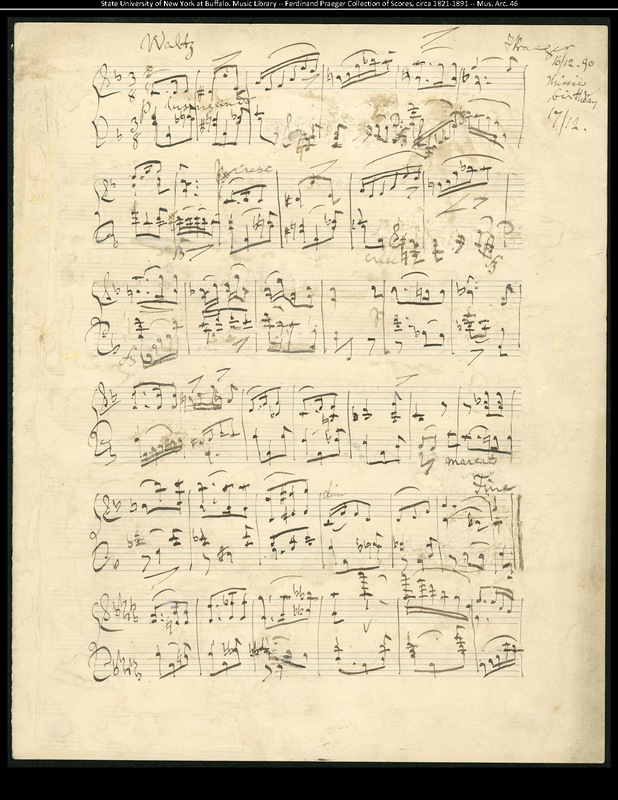 State University of New York at Buffalo. Music Library -- Ferdinand Praeger Collection of Scores, circa 1821-1891 -- Mus. Arc. 46
Waltz
FPraeger
16/12.90
birthday
17/12.
cresc
cresc
marcato
Fine
dim